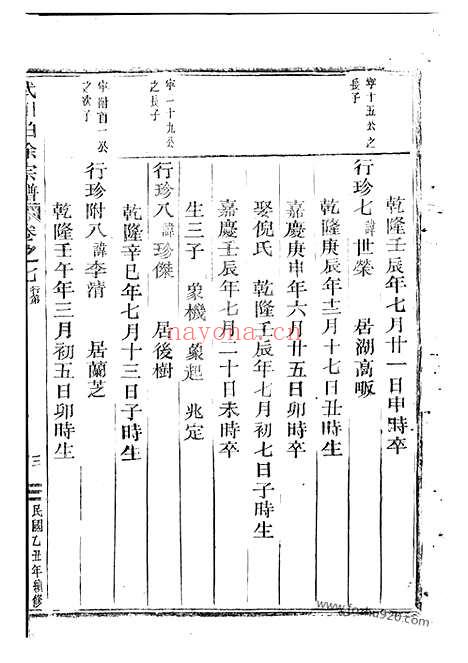 乾隆壬辰年七月廿一日申時卒
寧十五公之
長子
行珍七諱世榮 居湖高畈
乾隆庚辰年十二月十七日丑時生
嘉慶庚申年六月廿五日卯時卒
娶倪氏 乾隆壬辰年七月初七日子時生
嘉慶壬辰年七月二十日未時卒
生三子 象機 象起 兆定
寧一十九公
之長子
行珍八諱珍傑 居後樹
乾隆辛巳年七月十三日子時生
寧附百一公
之次子
行珍附八諱李清 居蘭芝
乾隆壬午年三月初五日卯時生
武川柏余宗譜
卷之七 行第
三
民國乙丑年續修
nayona.cn
www.jiapu920.com